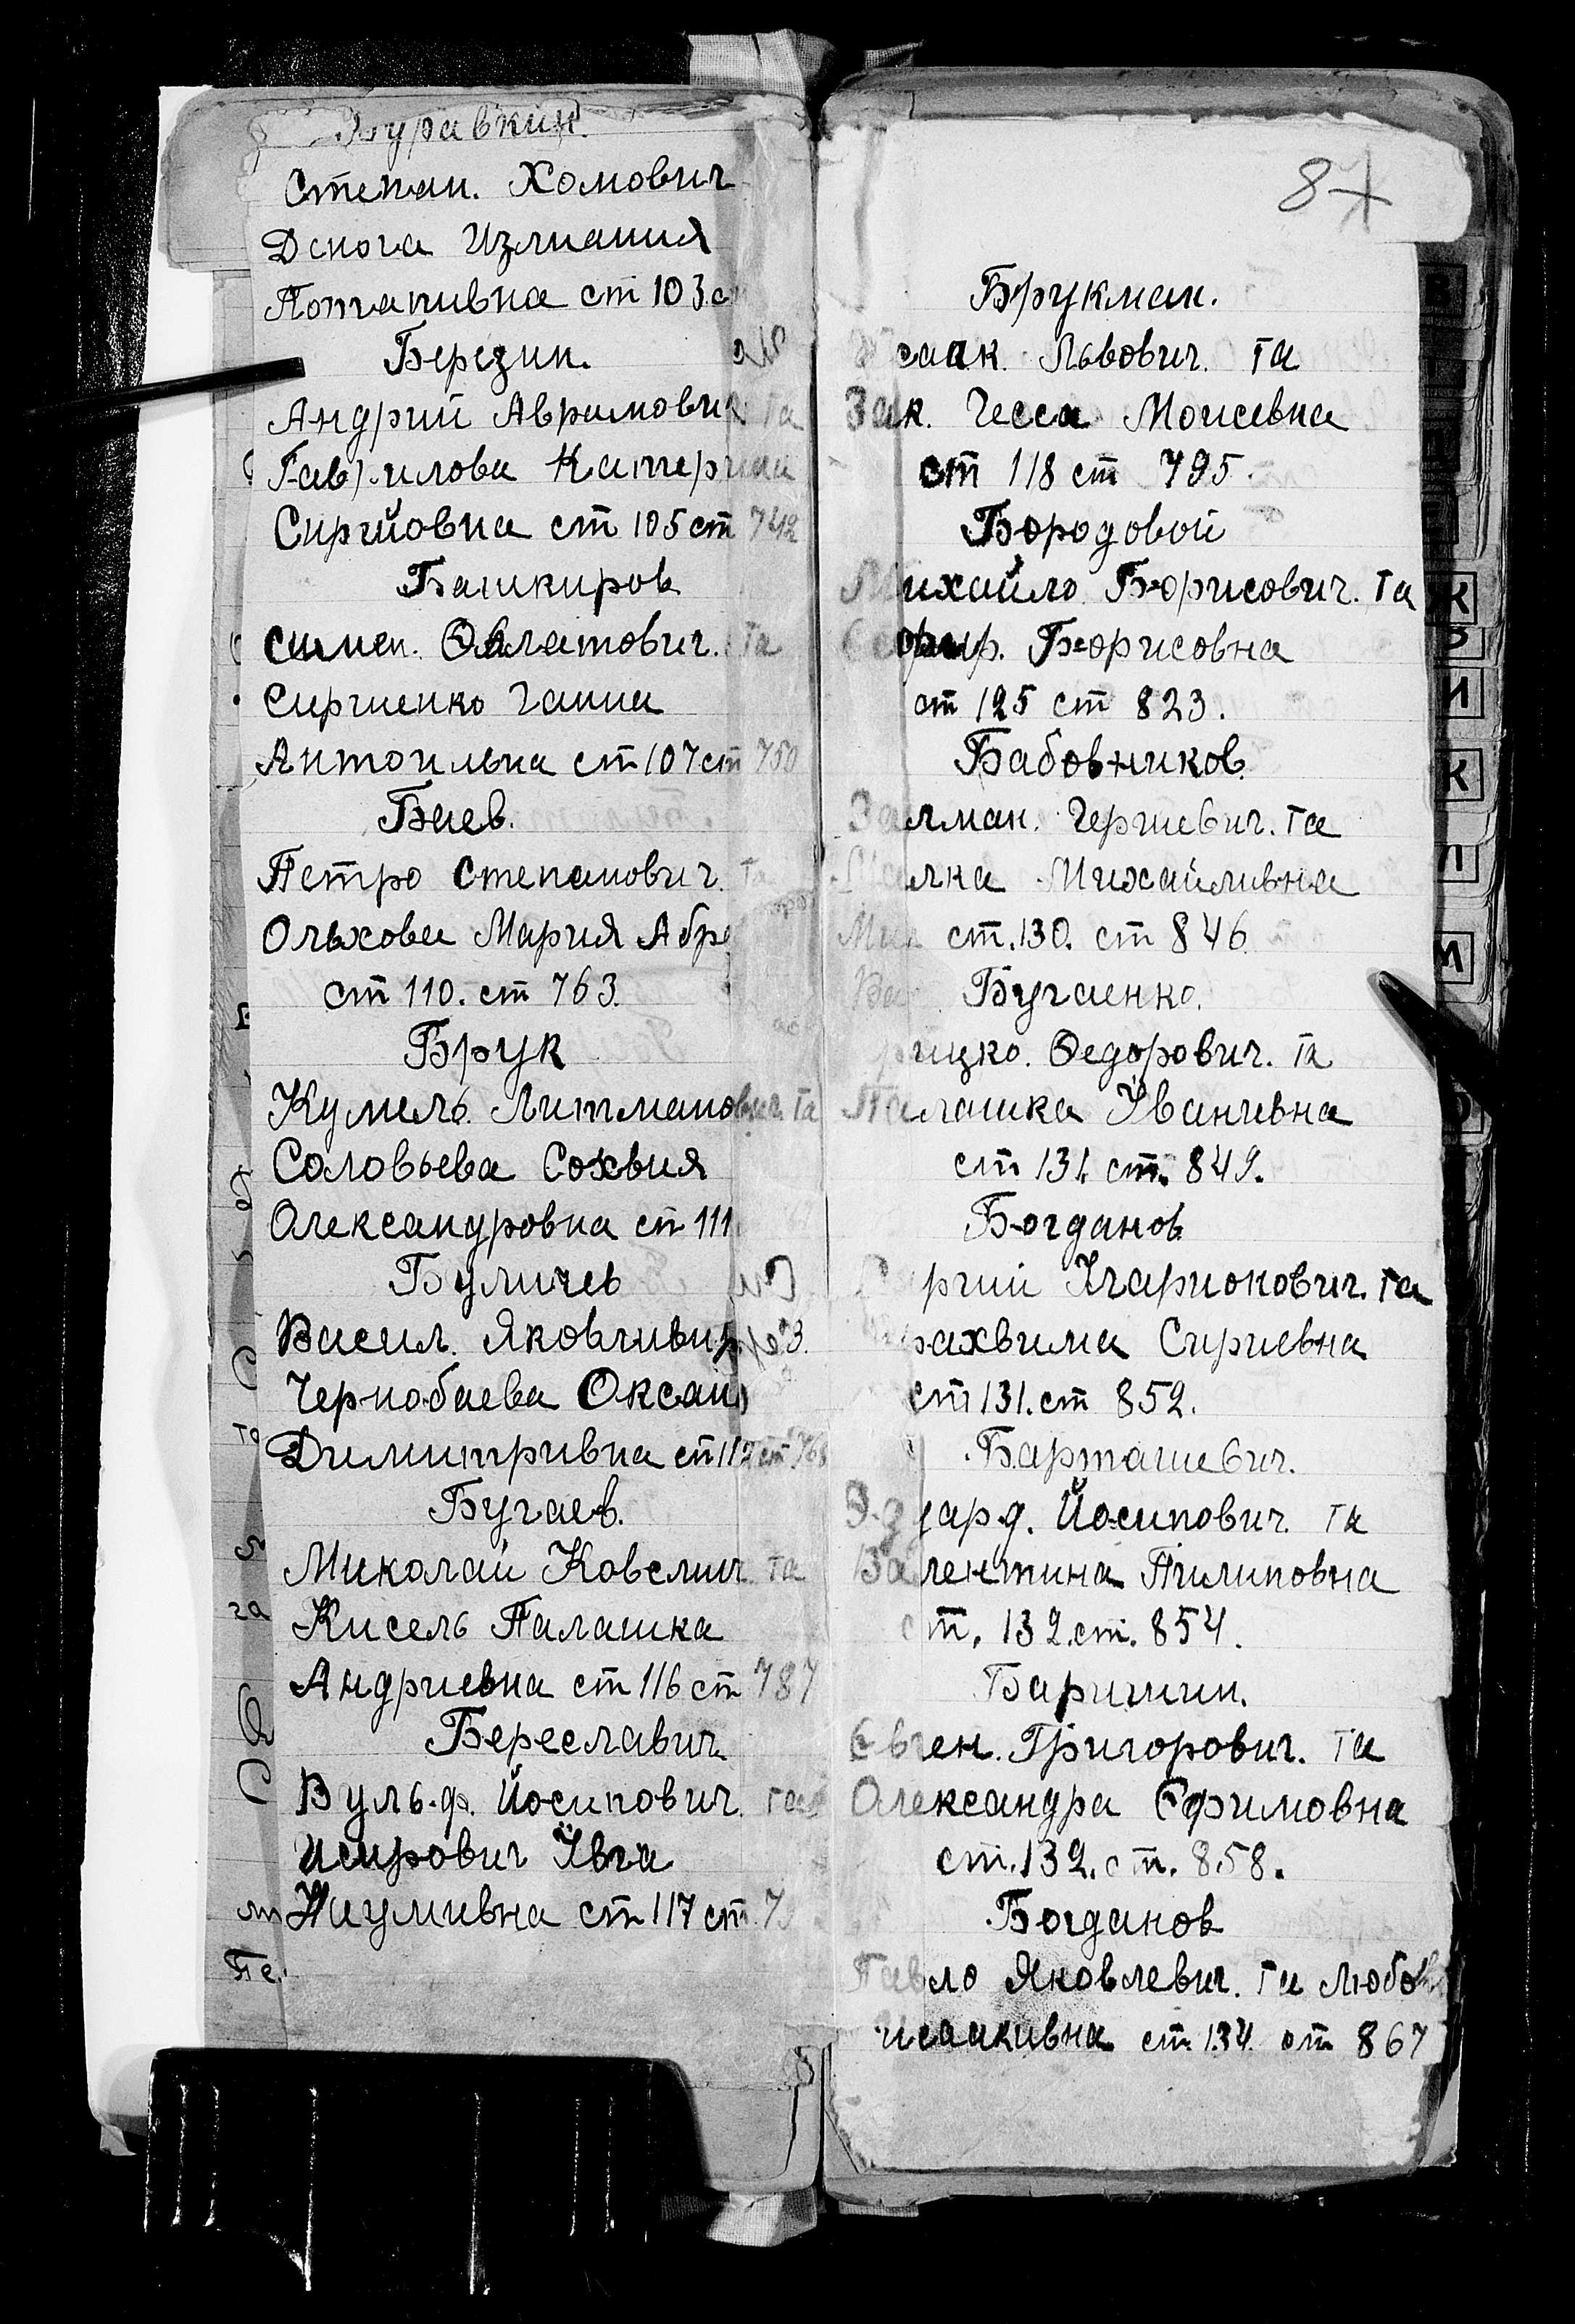 Журавкин.
Степан. Хомович
Дснога Измання
Потапивна ст 103
Березин.
Андрий Аврамович та
Гаврилова Катерина
Сиргиовна ст 105 ст 742
Башкиров
Симен. Овлатович. та
Сиргиенко Ганна
Антонивна ст 107 ст 750
Баев.
Петро Степанович. та
Ольхова Мария Абра
ст 110. ст 763.
Брук
Кумель. Литманович. та
Соловьева Сохвия
Олександровна ст 111
Буличев
Васил. Яковливич
Чернобаева Оксана
Димитривна ст 112 ст. 768
Бугаев.
Миколай Ковелич та
Кисель Палашка
Андриевна ст 116 ст 787
Береславич
Вульф. Йосипович. та
Исирович Ївга
Наумивна ст 117 ст. 7
87
Брукман.
Исаак. Львович. та
Зак. Гесса Моисевна
ст 118 ст 795.
Бородовой
Михайло Борисович. та
Борисовна
ст 125 ст 823.
Бабовников.
Залман. Гершевич. та
Малка Михайливна
ст. 130. ст 846
Бугаенко.
Грицко. Федорович. та
Палашка Иванивна
ст 131. ст. 849.
Богданов
Сиргий Иларионович. та
Сиргиевна
ст 131. ст 852.
Барташевич.
Эдуард. Йосипович. та
Валентина Пилиповна
ст. 132. ст. 854.
Баришин.
Євген. Григорович. та
Олександра Єфимовна
ст. 132. ст. 858.
Богданов
Павло Яковлевич. та Любов
Исаакивна ст. 134. ст 867